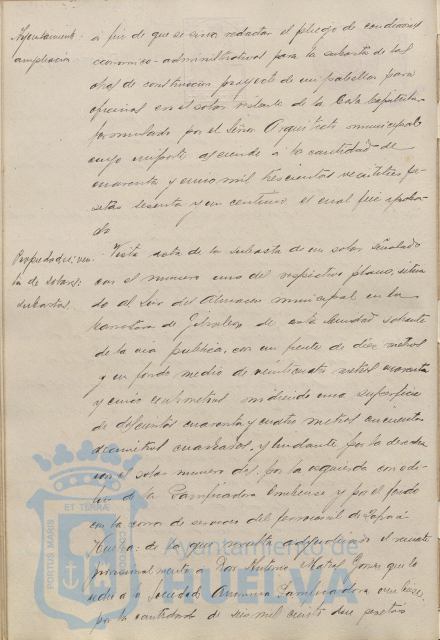 Ayuntamiento:
ampliación
á fin de que se sirva redactar el pliego de condiciones
económico-administrativas para la subasta de las
obras de construcción proyecto de un pabellón para
oficinas en el solar restante de la Casa Capitular
formulado por el Señor Arquitecto municipal
cuyo importe asciende á la cantidad de
cuarenta y cinco mil trescientas veintitres pe-
setas sesenta y un centimos, el cual fué aproba-
do
Propiedades: ven-
ta de solares:
subastas.
Vista acta de la subasta de un solar señalado
con el numero uno del respectivo plano, situa-
do al Sur del Almacen municipal en la
carretera de Gibraleon de esta Ciudad sobrante
de la via publica, con un frente de diez metros
y un fondo medio de veinticuatro metros cuarenta
y cinco centimetros midiendo una superficie
de doscientos cuarenta y cuatro metros cincuenta
decimetros cuadrados, y lindante por la derecha
con el solar numero dos, por la izquierda con
de la Panificadora Onubense y por el fondo
con la zona de servicios del ferrocarril de Zafra á
Huelva: de la que resulta adjudicado el remate
provisionalmente a Don Antonio que lo
cedió a Sociedad Anonima Panificadora Onubense,
por la cantidad de seis mil ciento doce pesetas
PORTUS MARIS ET TERRAE CUSTODIA
Ayuntamiento de
HUELVA